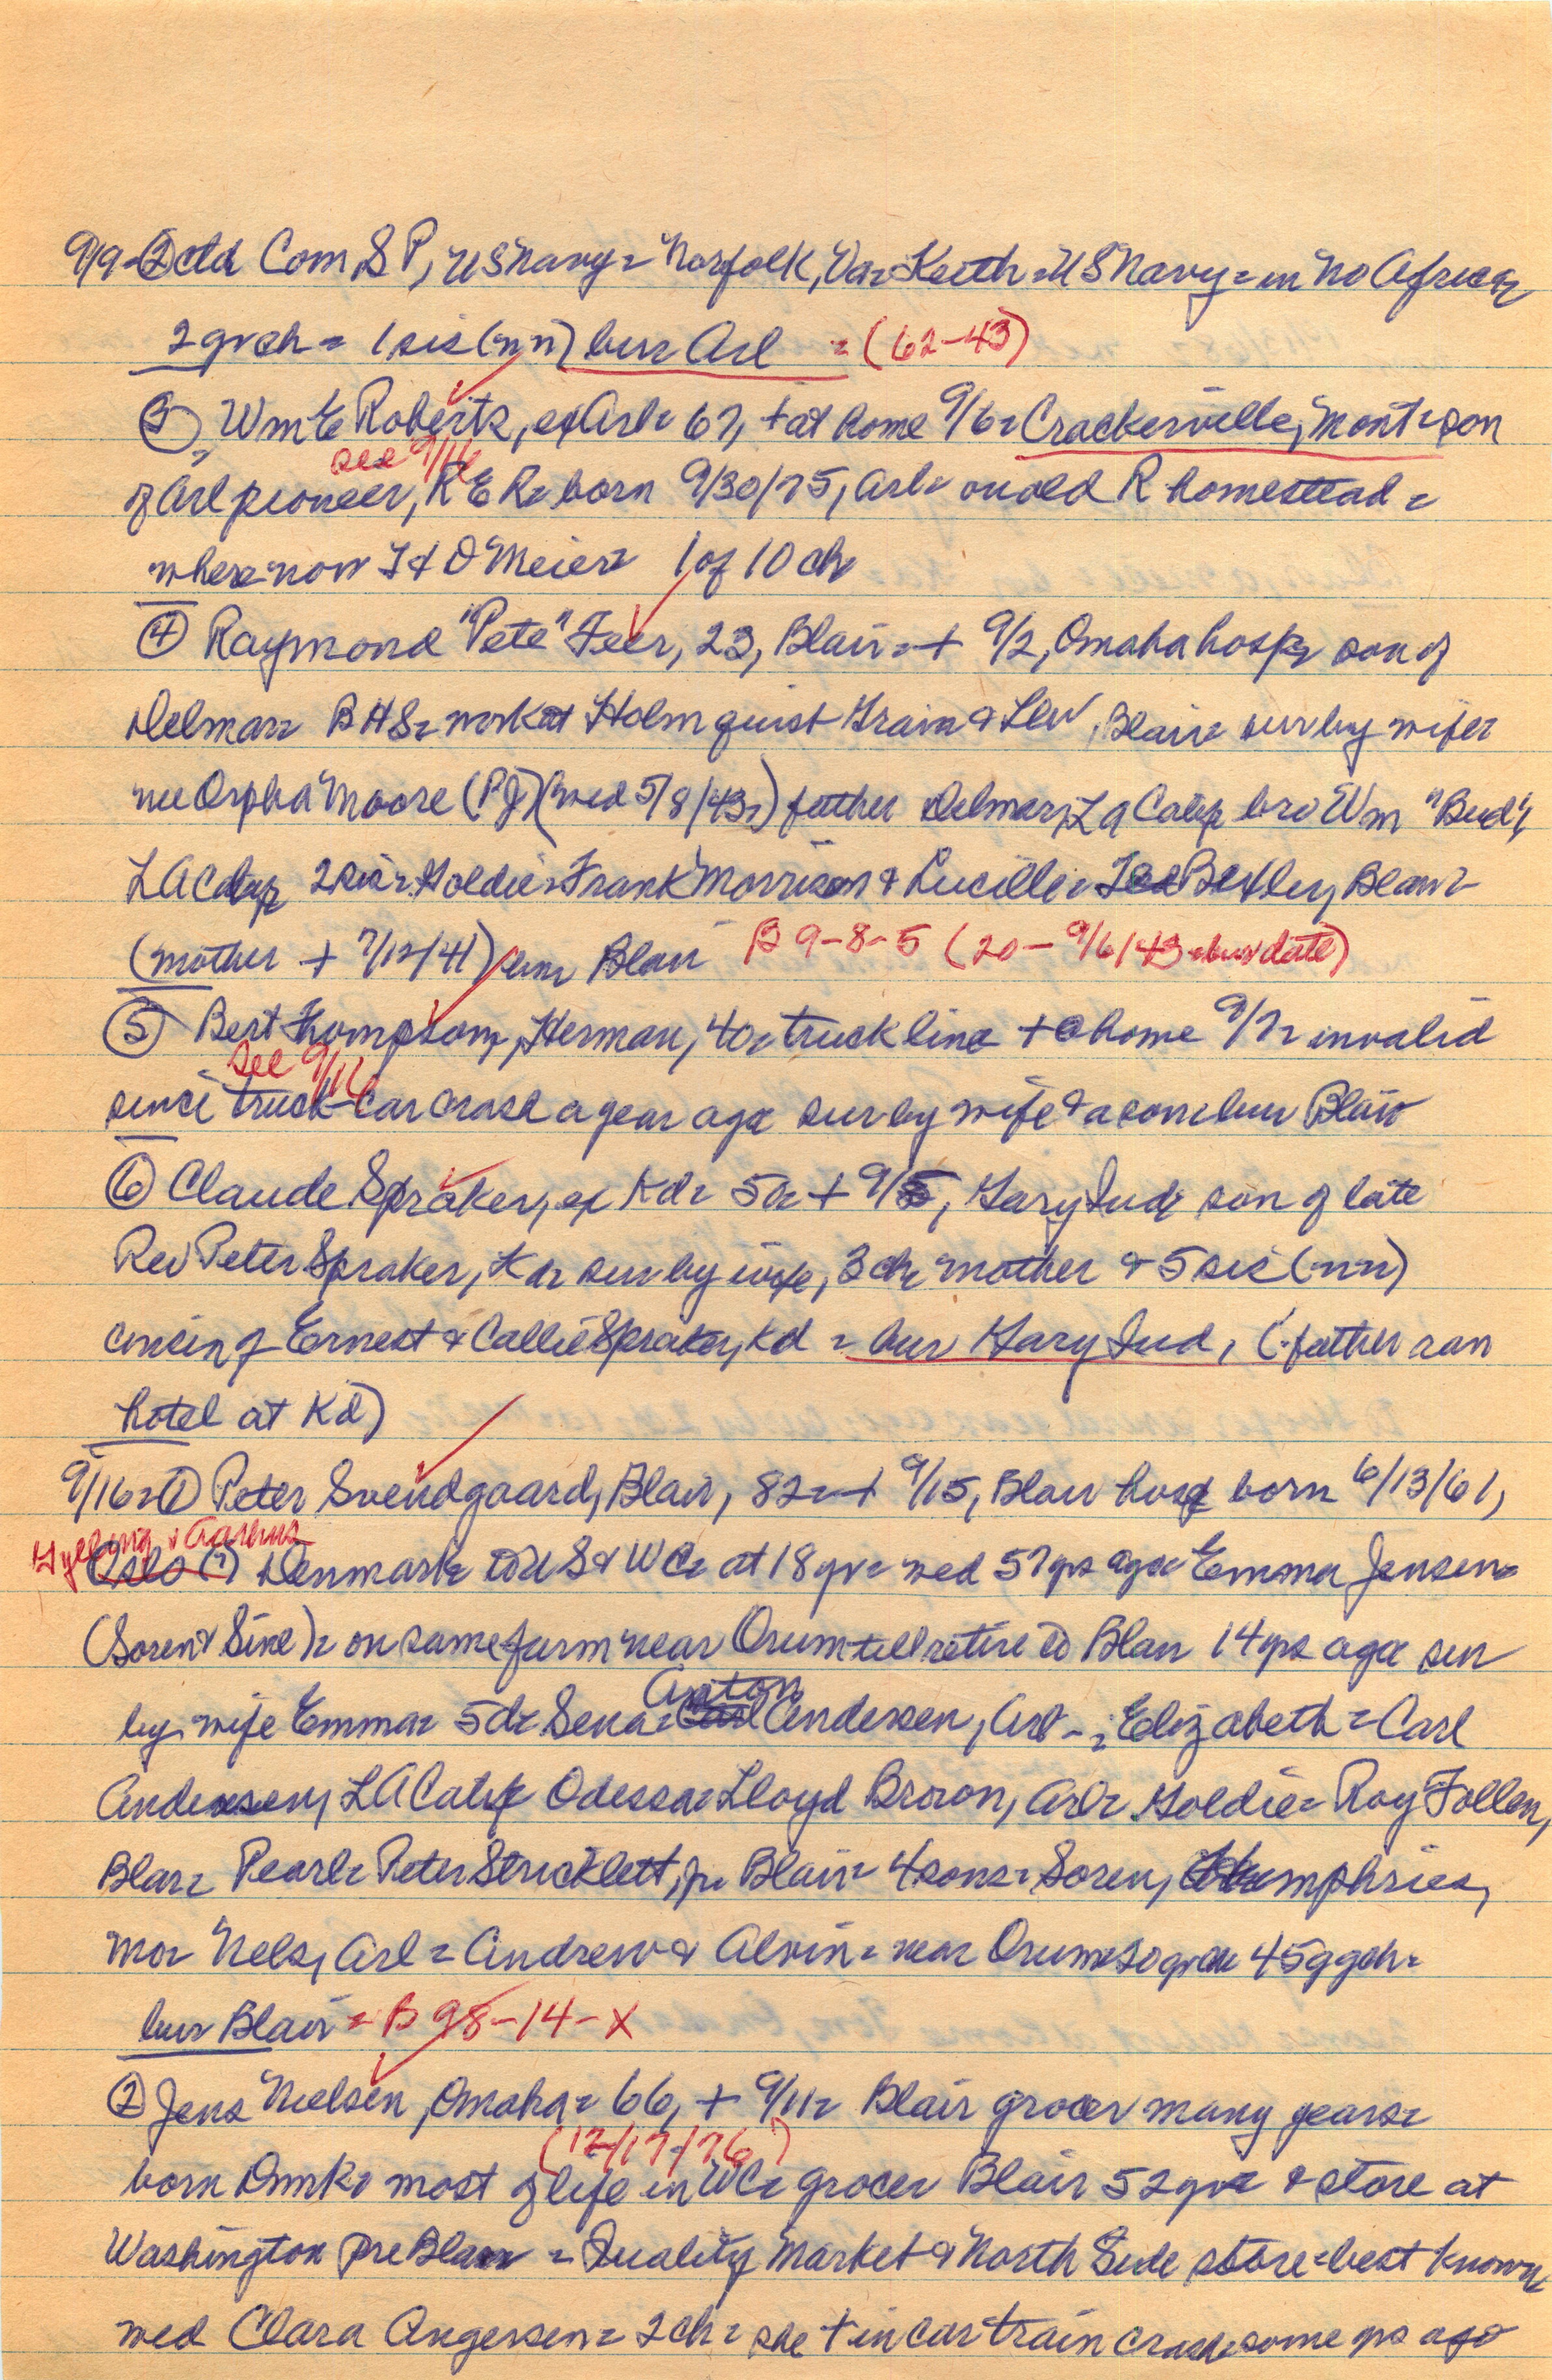 9/9=② ctd Com, S P, US Navy= Norfolk, Va= Keith=US Navy=in No Africa=
2 grch= 1 sis (nn) bur Arl = (62-43)
③, Wm E Roberts, ex Arl= 67, + at home 9/6= Crackerville, Mont= son
see 9/16
of Arl pioneer, R E R= born 9/30/75, Arl= on old R homestead=
where now I & O Meier= 1 of 10 ch
④ Raymond "Pete" Feer, 23, Blair=+ 9/2, Omaha hosp= son of
Delmar= BHS= work at Holmquist Grain & Lbr, Blair= sur by wife=
nee Orpha Moore (PJ) (wed 5/8/43=) father Delmar, LA Calif= bro Wm "Bud",
LA Calif= 2 sis= Goldie=Frank Morrison & Lucille= Bexley, Blair=
(mother + 7/12/41) bur Blair B 9-8-5 (20-9/6/43=bur date)
⑤ Bert Thompson, Herman, 40= truck line + @ home 9/7= invalid
see 9/16
since truck-car crash a year ago= sur by wife & a son=bur Blair
⑥ Claude Spraker, ex Kd= 50= + 9/5, Gary Ind= son of late
Rev Peter Spraker, K= sur by wife, 3 ch= mother & 5 sis (nn)
cousin of Ernest & Callie Spraker, Kd = bur Gary Ind, (father ran
hotel at Kd)
9/16=① Peter Svendgaard, Blair, 82=+ 9/15, Blair hosp born 6/13/61,
Hylling & Aarhus
Oslo (?) Denmark= to US & WC= at 18 yr= wed 57 yrs ago= Emma Jensen=
(Soren & Sine)= on same farm near Orum till retire to Blair 14 yrs ago= sur
Anton
by wife Emma= 5 d= Sena= Carl Andersen, Arl-; Elizabeth= Carl
Andersen, LA Calif= Odessa=Lloyd Brown, Arl= Goldie= Roy Follen,
Blair= Pearl= Peter Stricklett, jr= Blair= 4 sons= Soren, Humphries,
Mo= Nels, Arl= Andrew & Alvin= near Orum= 30 grch 45 ggch=
bur Blair = B 98-14-X
② Jens Nielsen, Omaha= 66, + 9/11= Blair grocer many years=
(12/17/76)
born Dmk= most of life in WC= grocer Blair 52 yr= & store at
Washington pre Blair = Quality Market & North Side store=best known
wed Clara Angersen= 2 ch= she + in car train crash some yrs ago